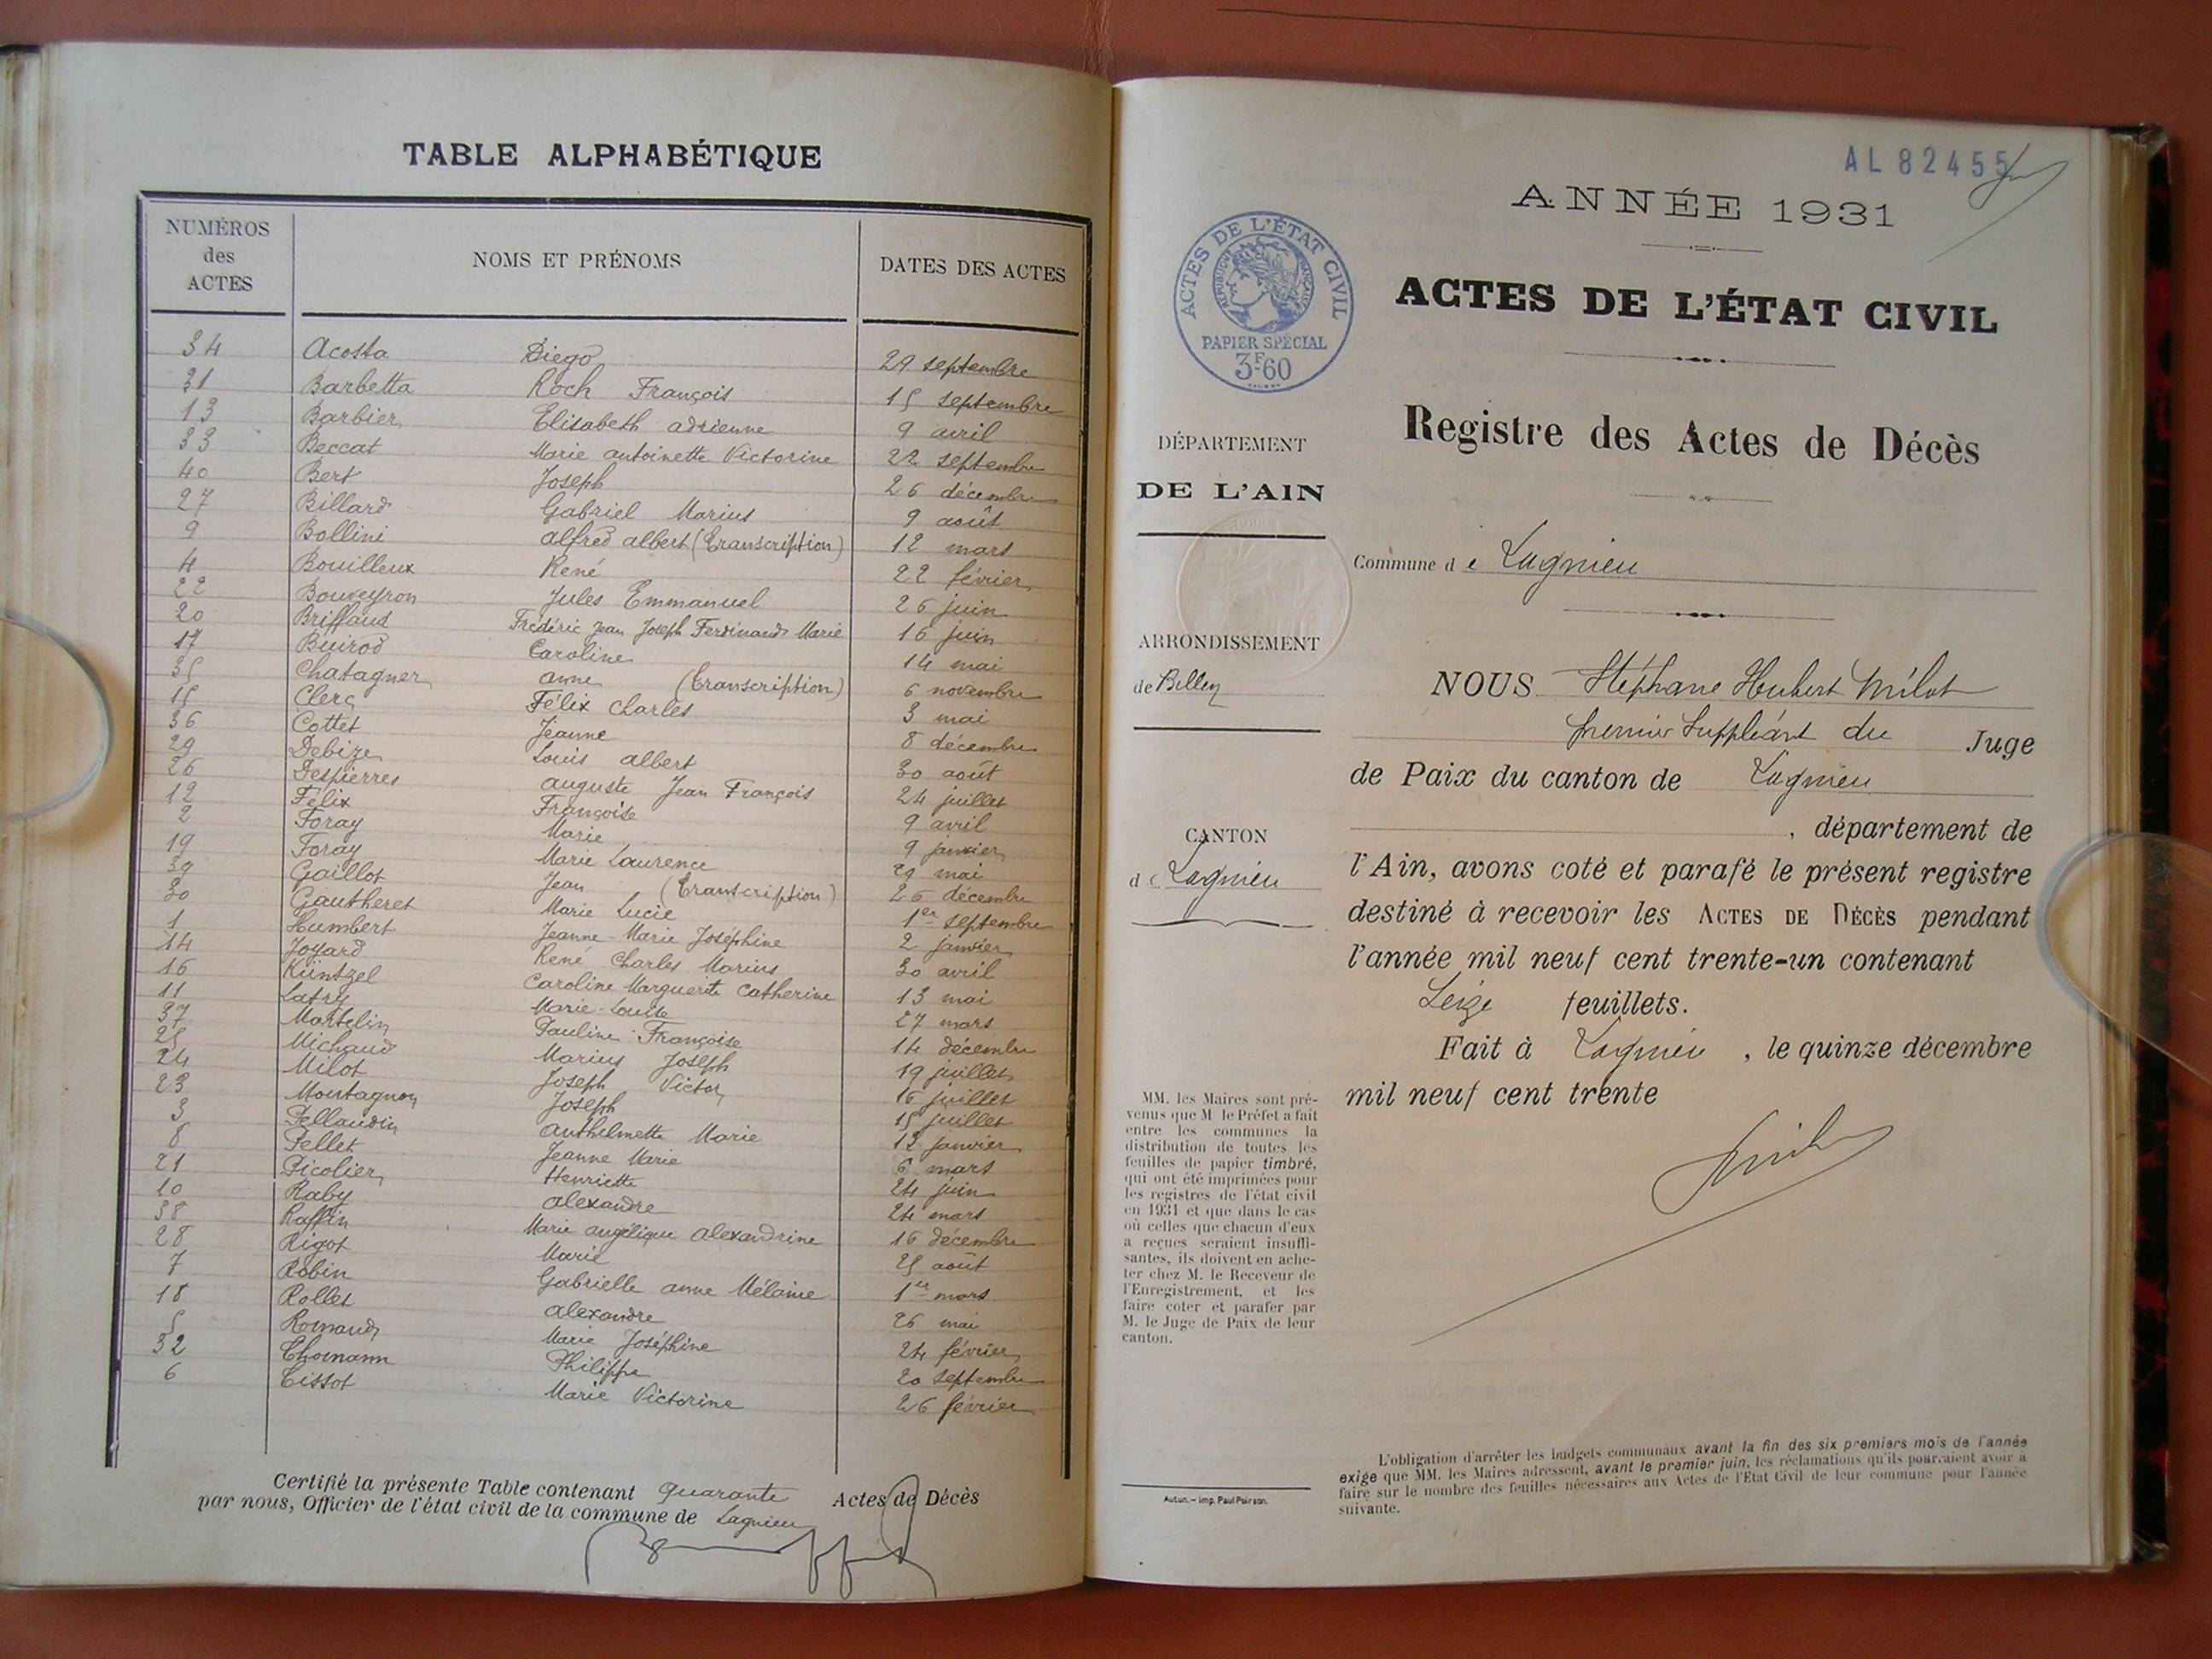 TABLE ALPHABÉTIQUE
NUMÉROS des ACTES NOMS ET PRÉNOMS DATES DES ACTES
34 Acosta Diego 29 septembre
31 Barbetta Roch François 15 septembre
13 Barbier Elisabeth adrienne 9 avril
33 Beccat Marie antoinette Victorine 22 septembre
40 Bert Joseph 26 décembre
27 Billard Gabriel Marius 9 août
9 Bollini alfred albert (Transcription) 12 mars
4 Bouilleux René 22 février
22 Bouveyron Jules Emmanuel 26 juin
20 Briffaud Frédéric Jean Joseph Ferdinand Marie 16 juin
17 Buirod Caroline 14 mai
35 Chatagner anne (Transcription) 6 novembre
15 Clerc Félix Charles 3 mai
36 Cottet Jeanne 8 décembre
29 Debize Louis albert 30 août
26 Despierres auguste Jean François 24 juillet
12 Félix Françoise 9 avril
2 Foray Marie 9 janvier
19 Foray Marie Laurence 29 mai
39 Gaillot Jean (Transcription) 26 décembre
30 Gautheret Marie Lucie 1er septembre
1 Humbert Jeanne-Marie Joséphine 2 janvier
14 Joyard René Charles Marius 30 avril
16 Küntzel Caroline Marguerite Catherine 13 mai
11 Lafry Marie-Louise 27 mars
37 Martelin Pauline Françoise 14 décembre
25 Michaud Marius Joseph 19 juillet
24 Milot Joseph Victor 16 juillet
23 Montagnon Joseph 15 juillet
3 Pellaudin Anthelmette Marie 12 janvier
8 Pellet Jeanne Marie 6 mars
21 Picolier Henriette 24 juin
10 Raby alexandre 24 mars
38 Raffin Marie angélique alexandrine 16 décembre
28 Rigot Marie 25 août
7 Robin Gabrielle anne Mélanie 1er mars
18 Rollet alexandre 26 mai
5 Romand Marie Joséphine 24 février
32 Thomann Philippe 20 septembre
6 Tissot Marie Victorine 26 février
Certifié la présente Table contenant quarante Actes de Décès
par nous, Officier de l'état civil de la commune de Lagnieu
AL 82455
ANNÉE 1931
ACTES DE L'ÉTAT CIVIL
RÉPUBLIQUE FRANÇAISE
PAPIER SPÉCIAL
3F60
ACTES DE L'ÉTAT CIVIL
Registre des Actes de Décès
DÉPARTEMENT
DE L'AIN
Commune de Lagnieu
ARRONDISSEMENT
de Belley
CANTON
de Lagnieu
NOUS Stéphane Hubert Milot
premier Suppléant du Juge
de Paix du canton de Lagnieu
, département de
l'Ain, avons coté et parafé le présent registre
destiné à recevoir les ACTES DE DÉCÈS pendant
l'année mil neuf cent trente-un contenant
Seize feuillets.
Fait à Lagnieu, le quinze décembre
mil neuf cent trente
MM. les Maires sont pré-
venus que M. le Préfet a fait
entre les communes la
distribution de toutes les
feuilles de papier timbré,
qui ont été imprimées pour
les registres de l'état civil
en 1931 et que dans le cas
où celles que chacun d'eux
a reçues seraient insuffi-
santes, ils doivent en ache-
ter chez M. le Receveur de
l'Enregistrement, et les
faire coter et parafer par
M. le Juge de Paix de leur
canton.
Autun. — Imp. Paul Poirson.
L'obligation d'arrêter les budgets communaux avant la fin des six premiers mois de l'année
exige que MM. les Maires adressent, avant le premier juin, les réclamations qu'ils pourraient avoir à
faire sur le nombre des feuilles nécessaires aux Actes de l'Etat Civil de leur commune pour l'année
suivante.